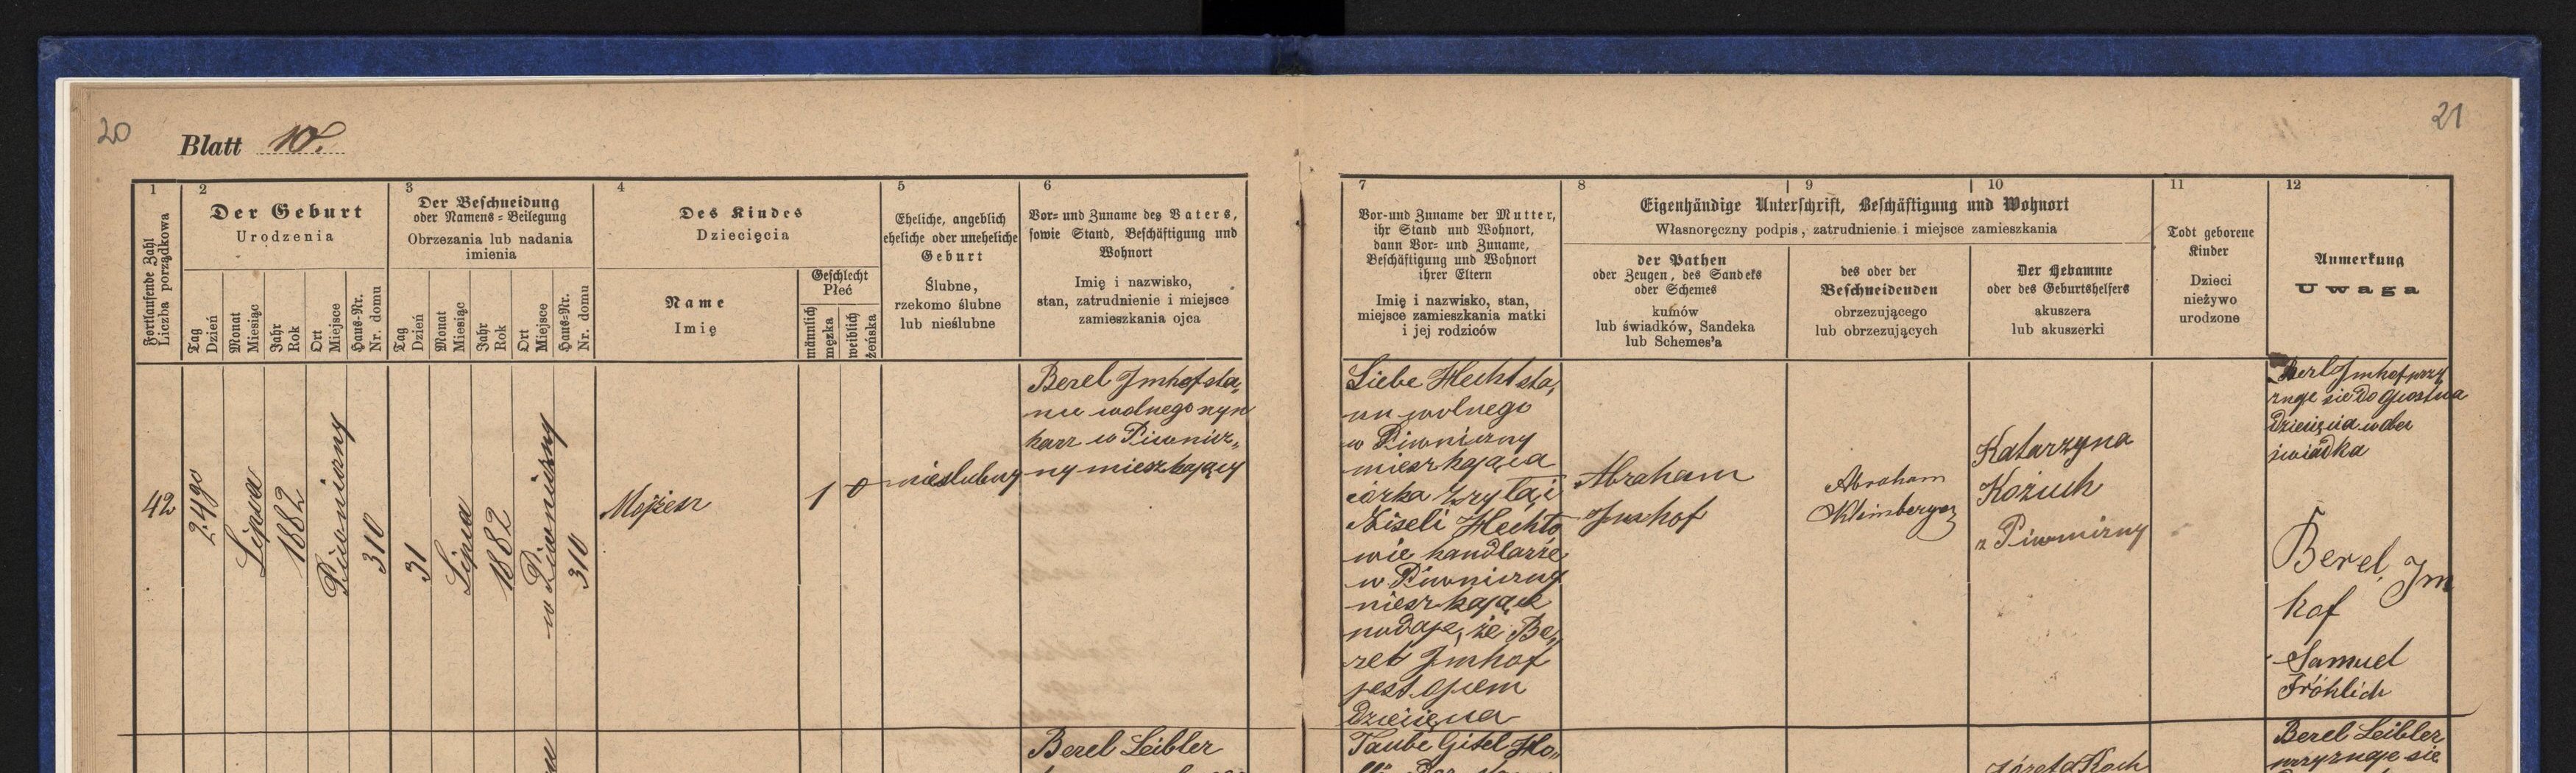 20
21
Blatt 10.
1
2
3
4
5
6
7
8
9
10
11
12
Fortlaufende Zahl
Liczba porządkowa
Der Geburt
Urodzenia
Tag
Dzień
Monat
Miesiąc
Jahr
Rok
Ort
Miejsce
Haus-Nr.
Nr. domu
Der Beschneidung
oder Namens-Beilegung
Obrzezania lub nadania
imienia
Tag
Dzień
Monat
Miesiąc
Jahr
Rok
Ort
Miejsce
Haus-Nr.
Nr. domu
Des Kindes
Dziecięcia
Name
Imię
Geschlecht
Płeć
männlich
męzka
weiblich
żeńska
Eheliche, angeblich
eheliche oder uneheliche
Geburt
Ślubne,
rzekomo ślubne
lub nieślubne
Vor- und Zuname des Vaters,
sowie Stand, Beschäftigung und
Wohnort
Imię i nazwisko,
stan, zatrudnienie i miejsce
zamieszkania ojca
Vor-und Zuname der Mutter,
ihr Stand und Wohnort,
dann Vor- und Zuname,
Beschäftigung und Wohnort
ihrer Eltern
Imię i nazwisko, stan,
miejsce zamieszkania matki
i jej rodziców
Eigenhändige Unterschrift, Beschäftigung und Wohnort
Własnoręczny podpis, zatrudnienie i miejsce zamieszkania
der Pathen
oder Zeugen, des Sandeks
oder Schemes
kumów
lub świadków, Sandeka
lub Schemes'a
des oder der
Beschneidenden
obrzezującego
lub obrzezujących
Der Hebamme
oder des Geburtshelfers
akuszera
lub akuszerki
Todt geborene
Kinder
Dzieci
nieżywo
urodzone
Anmerkung
Uwaga
42
24go
Lipca
1882
Piwniczny
310
31
Lipca
1882
w Piwniczny
310
Mojżesz
1
0
nieślubny
Berel Imhof sta„
nu wolnego szyn
karz w Piwnicz„
ny mieszkający
Liebe Hecht sta„
nu wolnego
w Piwniczny
mieszkająca
córka
Hechto
wie handlarze
w Piwniczny
mieszkające
podaje, że Be„
rel Imhof
jest ojcem
dziecięcia
Abraham
Imhof
Abraham
Katarzyna
Kożuch
z Piwniczny
Berl Imhof przy
znaje się do ojcostwa
dziecięcia wobec
świadka
Berel Im
hof
Samuel
Fröhlich
Berel Leibler
Taube Gitel Ho„
Józefa Koch
Berel Leibler
przyznaje się